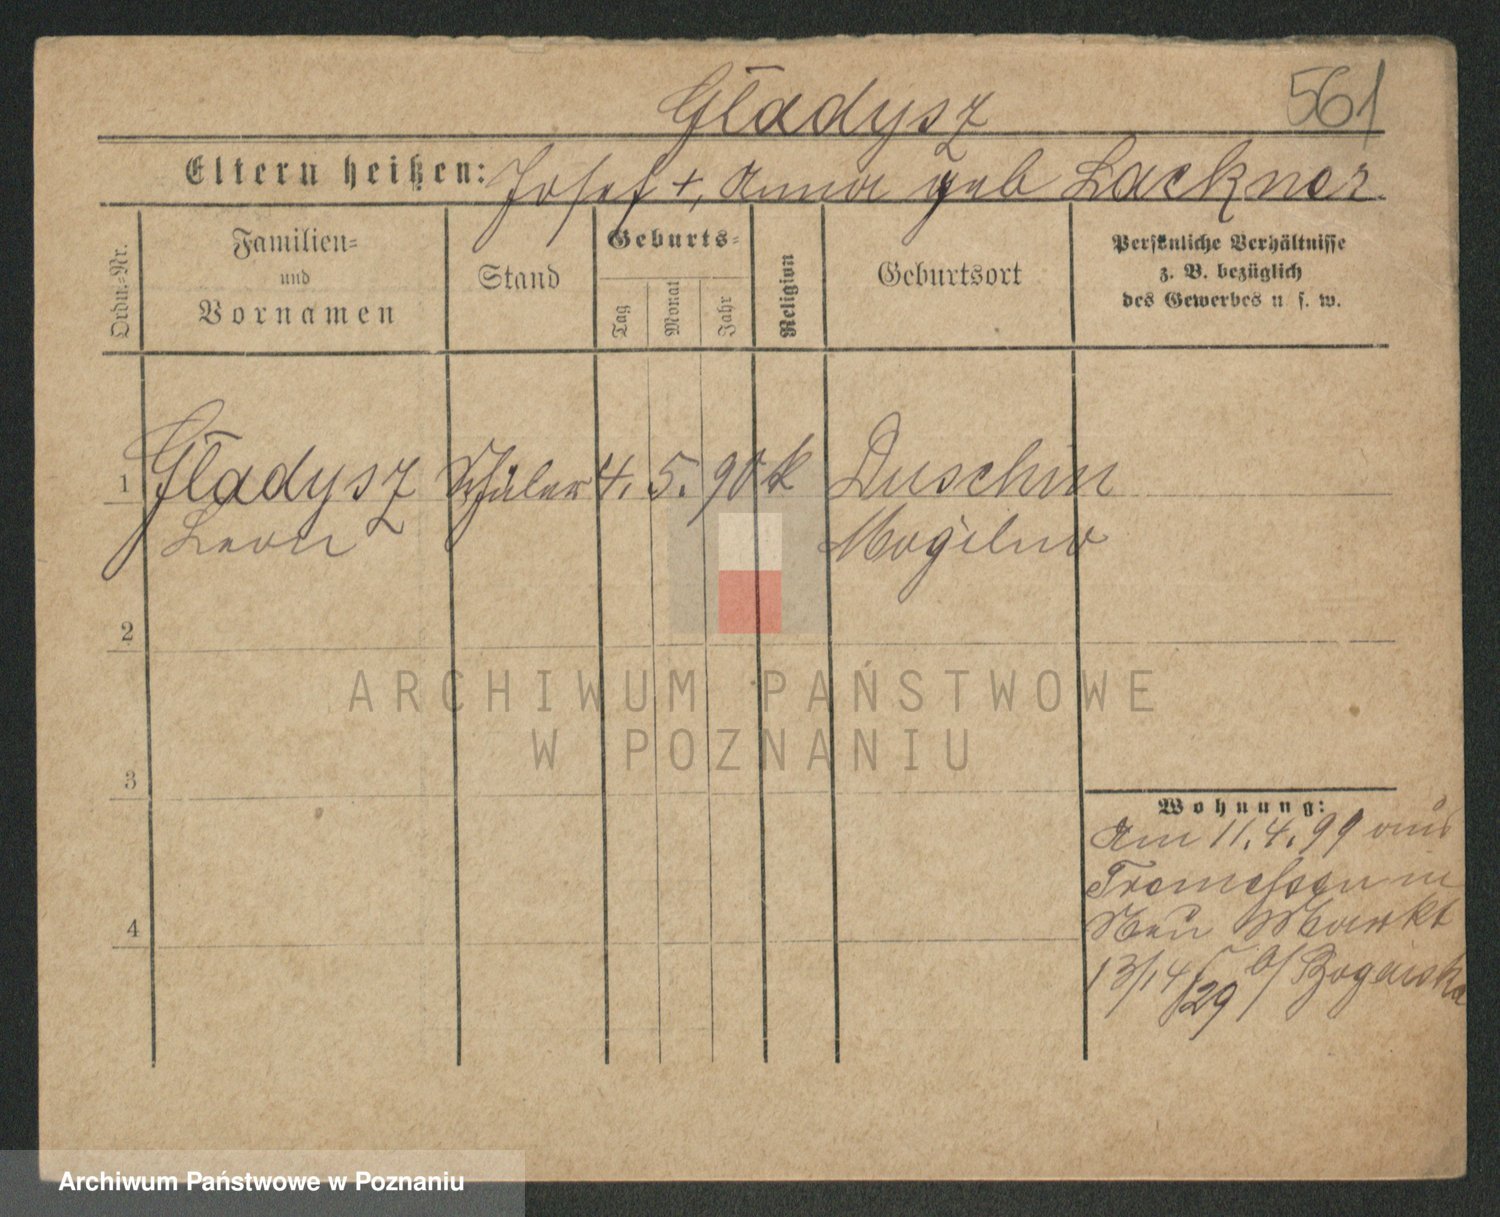 561
Gładysz
Eltern heißen: Josef +, Anna geb Lackner
Ordn.-Nr.
Familien-
und
Vornamen
Stand
Geburts-
Tag
Monat
Jahr
Religion
Geburtsort
Persönliche Verhältnisse
z. B. bezüglich
des Gewerbes u. s. w.
1 Gładysz Schüler 4. 5. 90 k Duschin
Leon Mogilno
2
3
4
Wohnung:
Am 11.4.99 aus
Tremessen in
Neu Markt
13/14 b/
29
ARCHIWUM PAŃSTWOWE
W POZNANIU
Archiwum Państwowe w Poznaniu